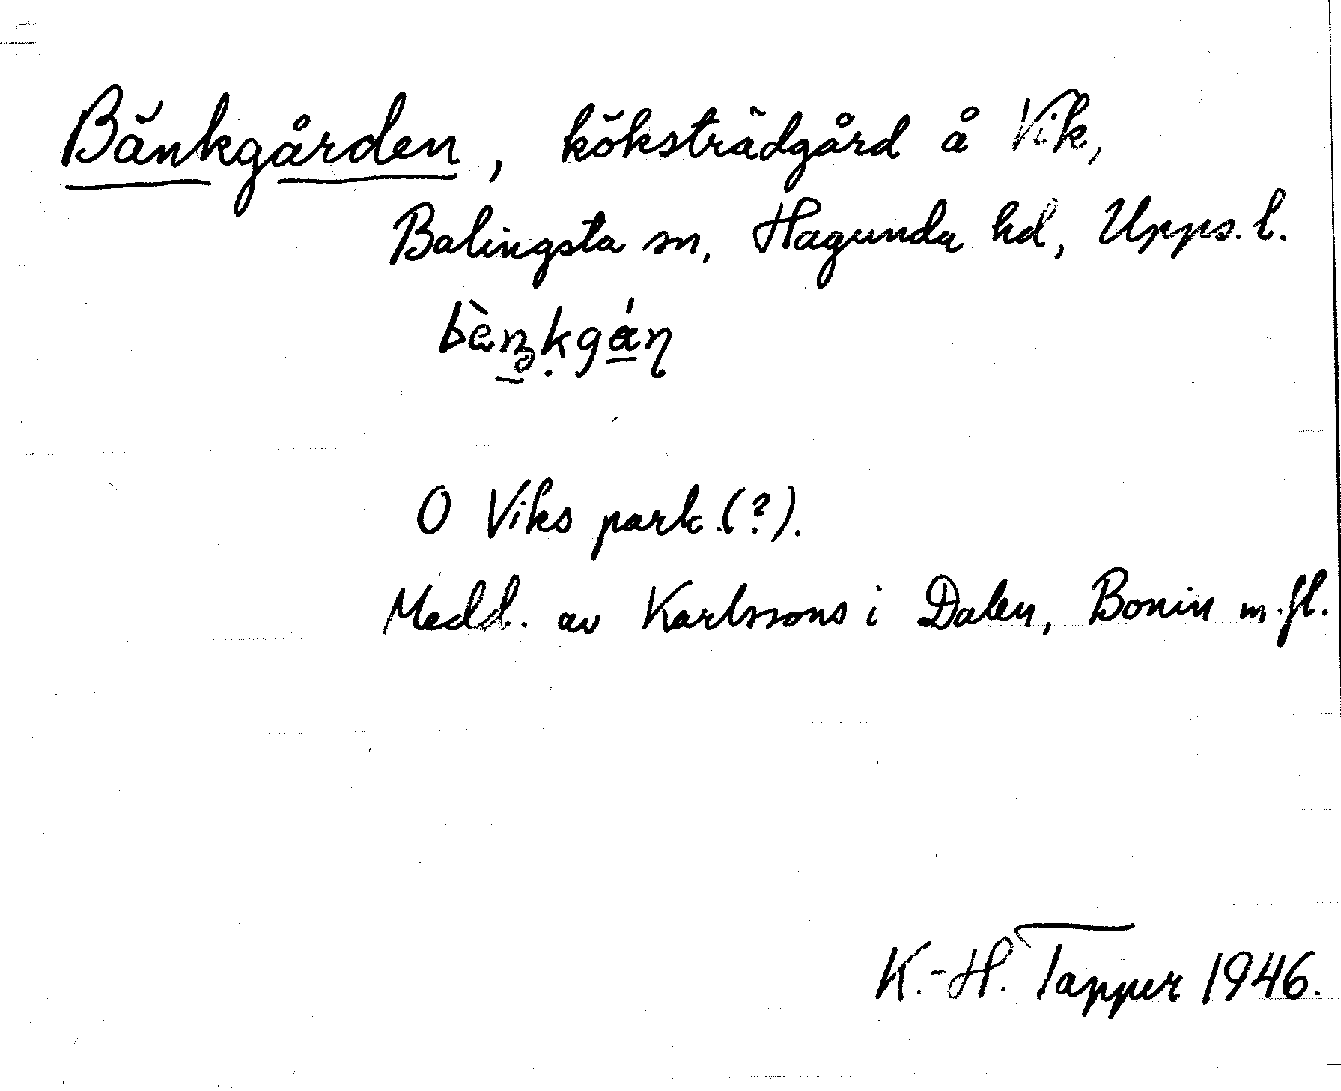 Bänkgården, köksträdgård å Vik,
Balingsta sn, Hagunda hd, Upps. l.
bèŋ̠ḳgá̠ɳ
O Viks park (?).
Medd. av Karlssons i Dalen, Bonin m. fl.
K.-H. Tapper 1946.